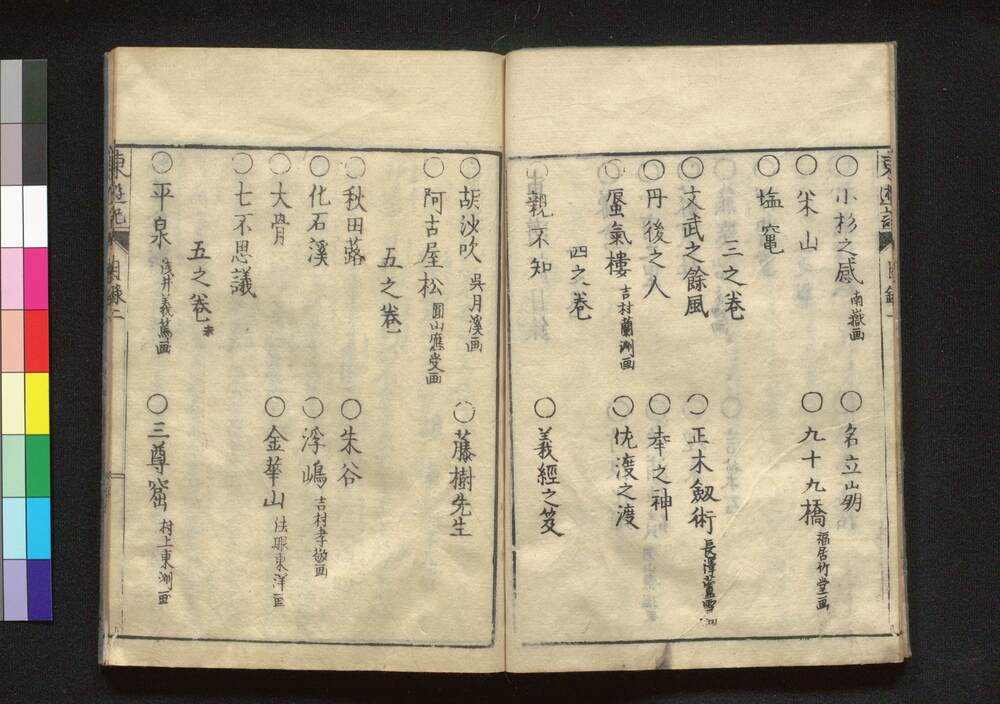 東遊記 目録一
○小杉之感 南嶽画 ○名立崩
○米山 ○九十九橋 福居竹堂画
○塩竃
三之巻
○文武之餘風 ○正木劔術 長澤蘆雪画
○丹後之人 ○本之神
○蜃氣樓 吉村蘭洲画 ○佐渡之渡
四之巻
○親不知 ○義經之笈
○胡沙吹 呉月溪画 ○藤樹先生
○阿古屋松 圓山應受画
五之巻
○秋田蕗 ○朱谷
○化石溪 ○浮嶋 吉村孝敬画
○大骨 ○金華山 法眼東洋画
○七不思議
五之巻末
○平泉 浅井義篤画 ○三尊窟 村上東洲画
東遊記 目録二